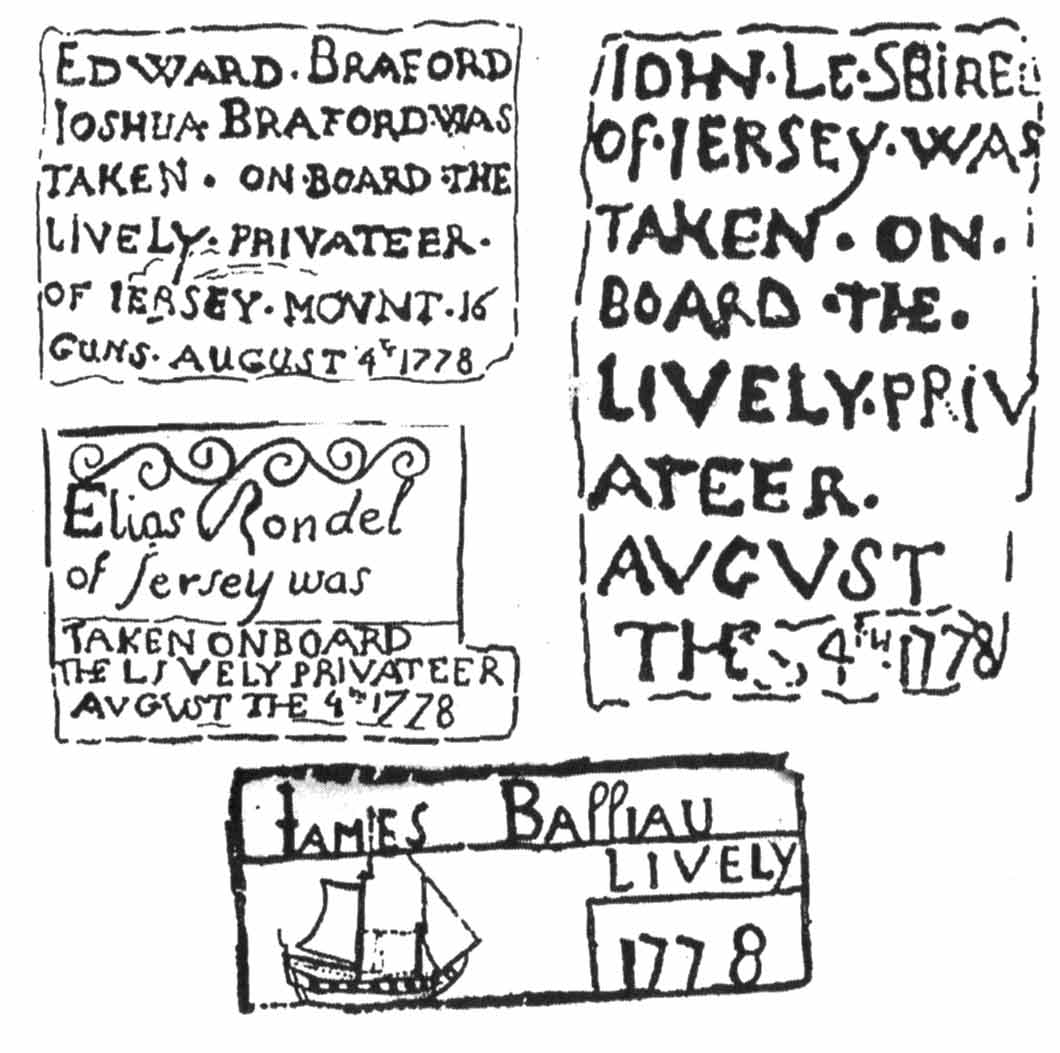 EDWARD · BRAFORD
IOSHUA BRAFORD WAS
TAKEN · ON · BOARD · THE
LIVELY · PRIVATEER ·
OF IERSEY · MOVNT · 16
GUNS · AUGUST 4th 1778
IOHN · LE · SBIREL
OF · IERSEY · WAS
TAKEN · ON ·
BOARD · THE ·
LIVELY · PRIV
ATEER ·
AVGVST
THE 4TH 1778
Elias Rondel
of Jersey was
TAKEN ON BOARD
THE LIVELY PRIVATEER
AVGVST THE 4th 1778
IAMES Baſſiau
LIVELY
1778